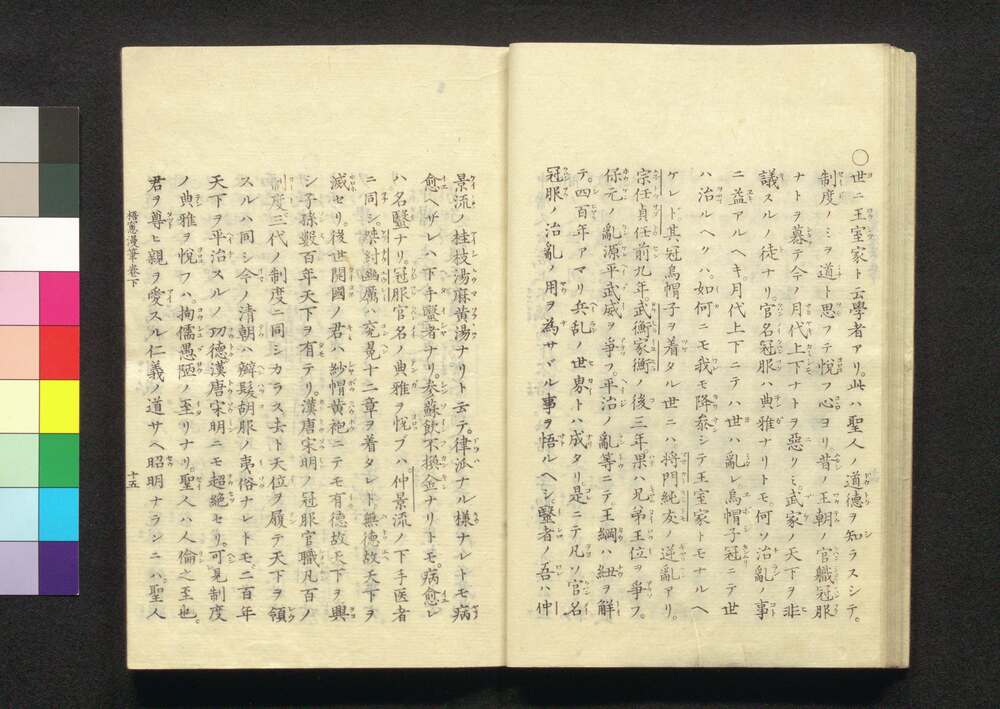 ○世ニ王室家ト云學者アリ。此ハ聖人ノ道德ヲ知ラスシテ。
制度ノミヲ道ト思フテ悅フ心ヨリ昔ノ王朝ノ官職冠服
ナトヲ慕テ今ノ月代上下ナトヲ惡クミ。武家ノ天下ヲ非
議スルノ徒ナリ。官名冠服ハ典雅ナリトモ。何ソ治亂ノ事
ニ益アルヘキ。月代上下ニテハ世ハ亂レ烏帽子冠ニテ世
ハ治ルヘクハ。如何ニモ我モ降參シテ王室家トモナルヘ
ケレド其冠烏帽子ヲ着タル世ニハ將門純友ノ逆亂アリ。
宗任貞任前九年。武衡家衡ノ後三年果ハ兄弟王位ヲ爭フ。
保元ノ亂源平武威ヲ爭フ。平治ノ亂等ニテ王綱ハ紐ヲ解
テ。四百年アマリ兵乱ノ世界トハ成タリ是ニテ凡ソ官名
冠服ノ治亂ノ用ヲ為サヾル事ヲ悟ルヘシ。醫者ノ吾ハ仲
景流ノ桂枝湯麻黄湯ナリト云テ。律派ナル様ナレトモ病
愈ヘザレハ下手醫者ナリ。參蘇飲不換金ナリトモ。病愈レ
ハ名醫ナリ。冠服官名ノ典雅ヲ悅ブハ仲景流ノ下手医者
ニ同シ。桀紂幽厲ハ袞冕十二章ヲ着タレド無德故天下ヲ
滅セリ。後世開國ノ君ハ紗帽黄袍ニテモ有德故天下ヲ興
シ子孫數百年天下ヲ有テリ。漢唐宋明ノ冠服官職凡百ノ
制度三代ノ制度ニ同シカラス去ト天位ヲ履テ天下ヲ領
スルハ同シ今ノ清朝ハ辮髮胡服ノ夷俗ナレトモ。二百年
天下ヲ平治スルノ功德漢唐宋明ニモ超絶セリ。可見制度
ノ典雅ヲ悅フハ。拘儒愚陋ノ至リナリ。聖人ハ人倫之至也。
君ヲ尊ヒ親ヲ愛スル仁義ノ道サヘ昭明ナラシニハ。聖人
漫筆 卷下
十五